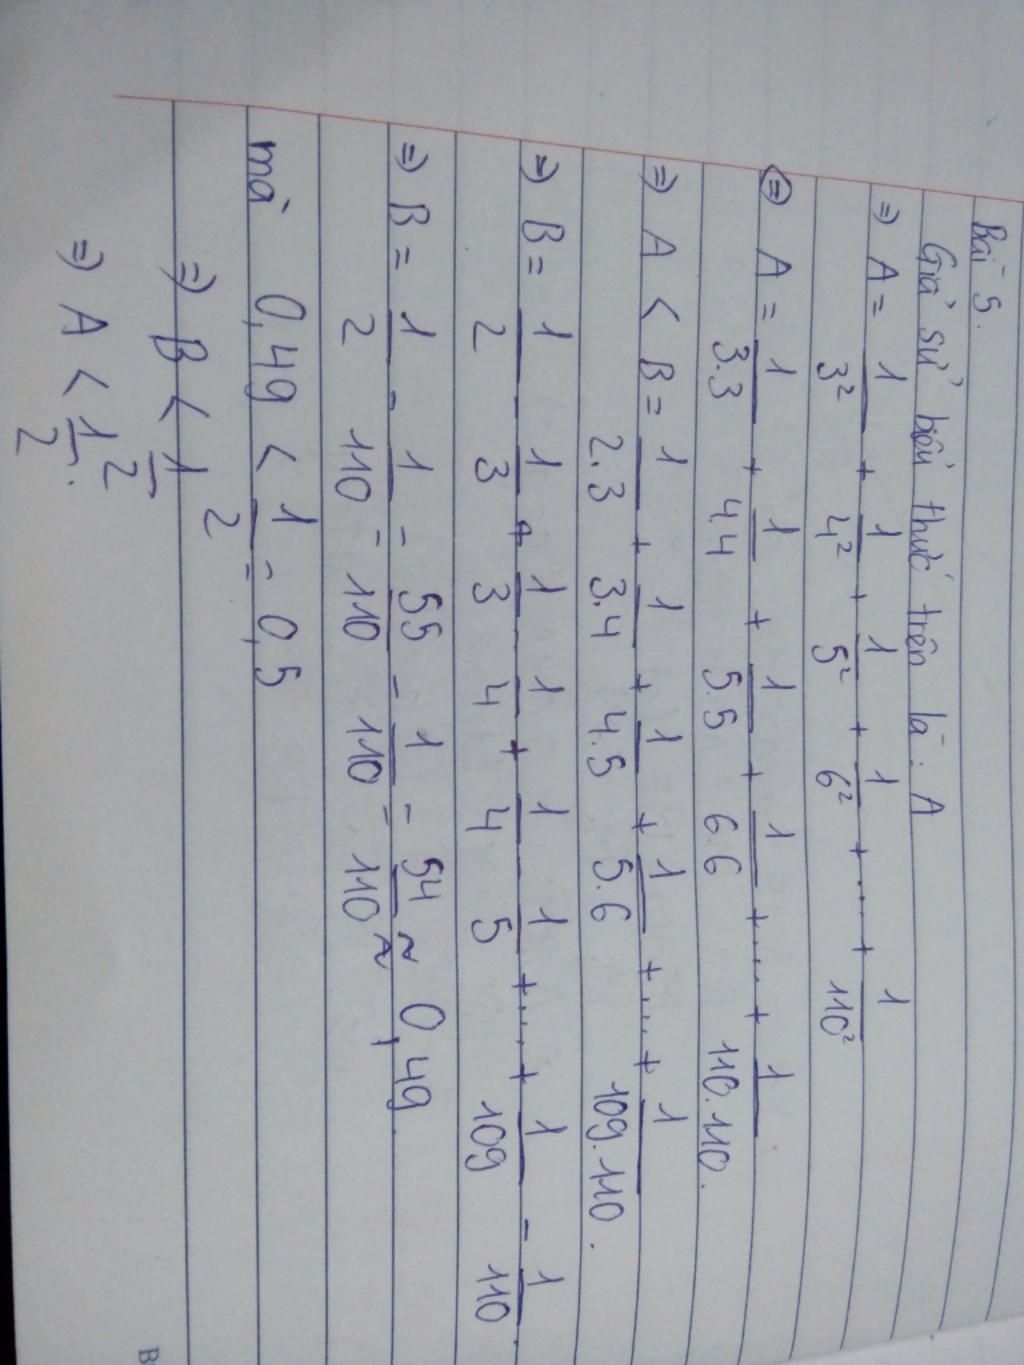 Bài 5.
Giả sử biểu thức trên là: A
=> A = 1/3² + 1/4² + 1/5² + 1/6² + .... + 1/110²
=> A = 1/3.3 + 1/4.4 + 1/5.5 + 1/6.6 + .... + 1/110.110.
=> A < B = 1/2.3 + 1/3.4 + 1/4.5 + 1/5.6 + .... + 1/109.110.
=> B = 1/2 - 1/3 + 1/3 - 1/4 + 1/4 - 1/5 + .... + 1/109 - 1/110
=> B = 1/2 - 1/110 = 55/110 - 1/110 = 54/110 ≈ 0,49.
mà 0,49 < 1/2 = 0,5
=> B < 1/2
=> A < 1/2.
B